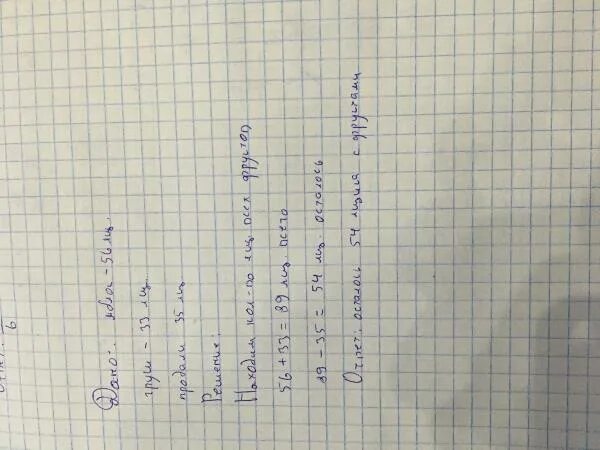 6
Дано: яблок - 56 ящ.
груш - 33 ящ.
продали 35 ящ
Решение:
Находим кол-во ящ. всех фруктов
56 + 33 = 89 ящ. всего
89 - 35 = 54 ящ. осталось
Ответ: осталось 54 ящика с фруктами